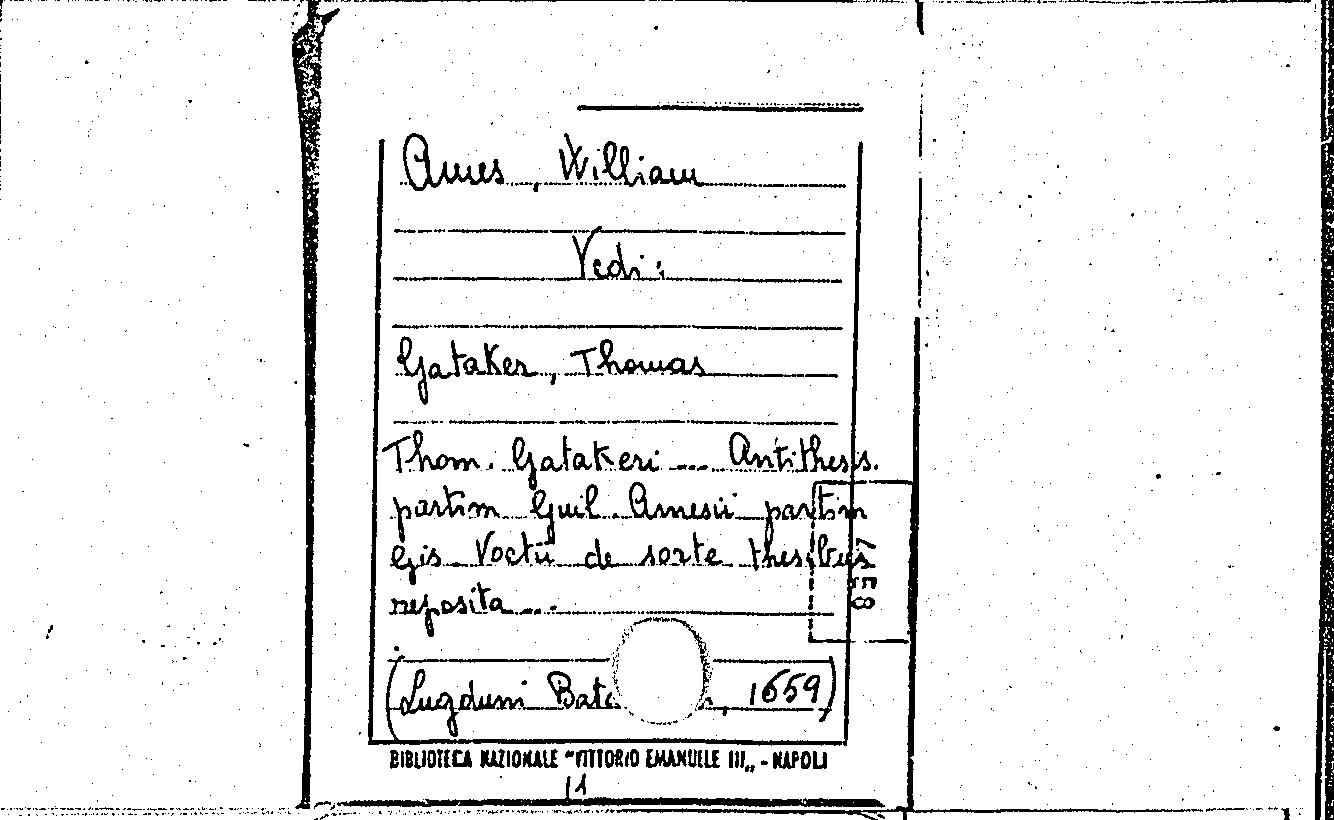 Ames, William
Vedi:
Gataker, Thomas
Thom. Gatakeri ... Antithesis.
partim Guil. Amesii partim
Gis. Voctii de sorte thesibus
reposita ...
(Lugduni Bata , 1659)
BIBLIOTECA NAZIONALE "VITTORIO EMANUELE III„ - NAPOLI
11